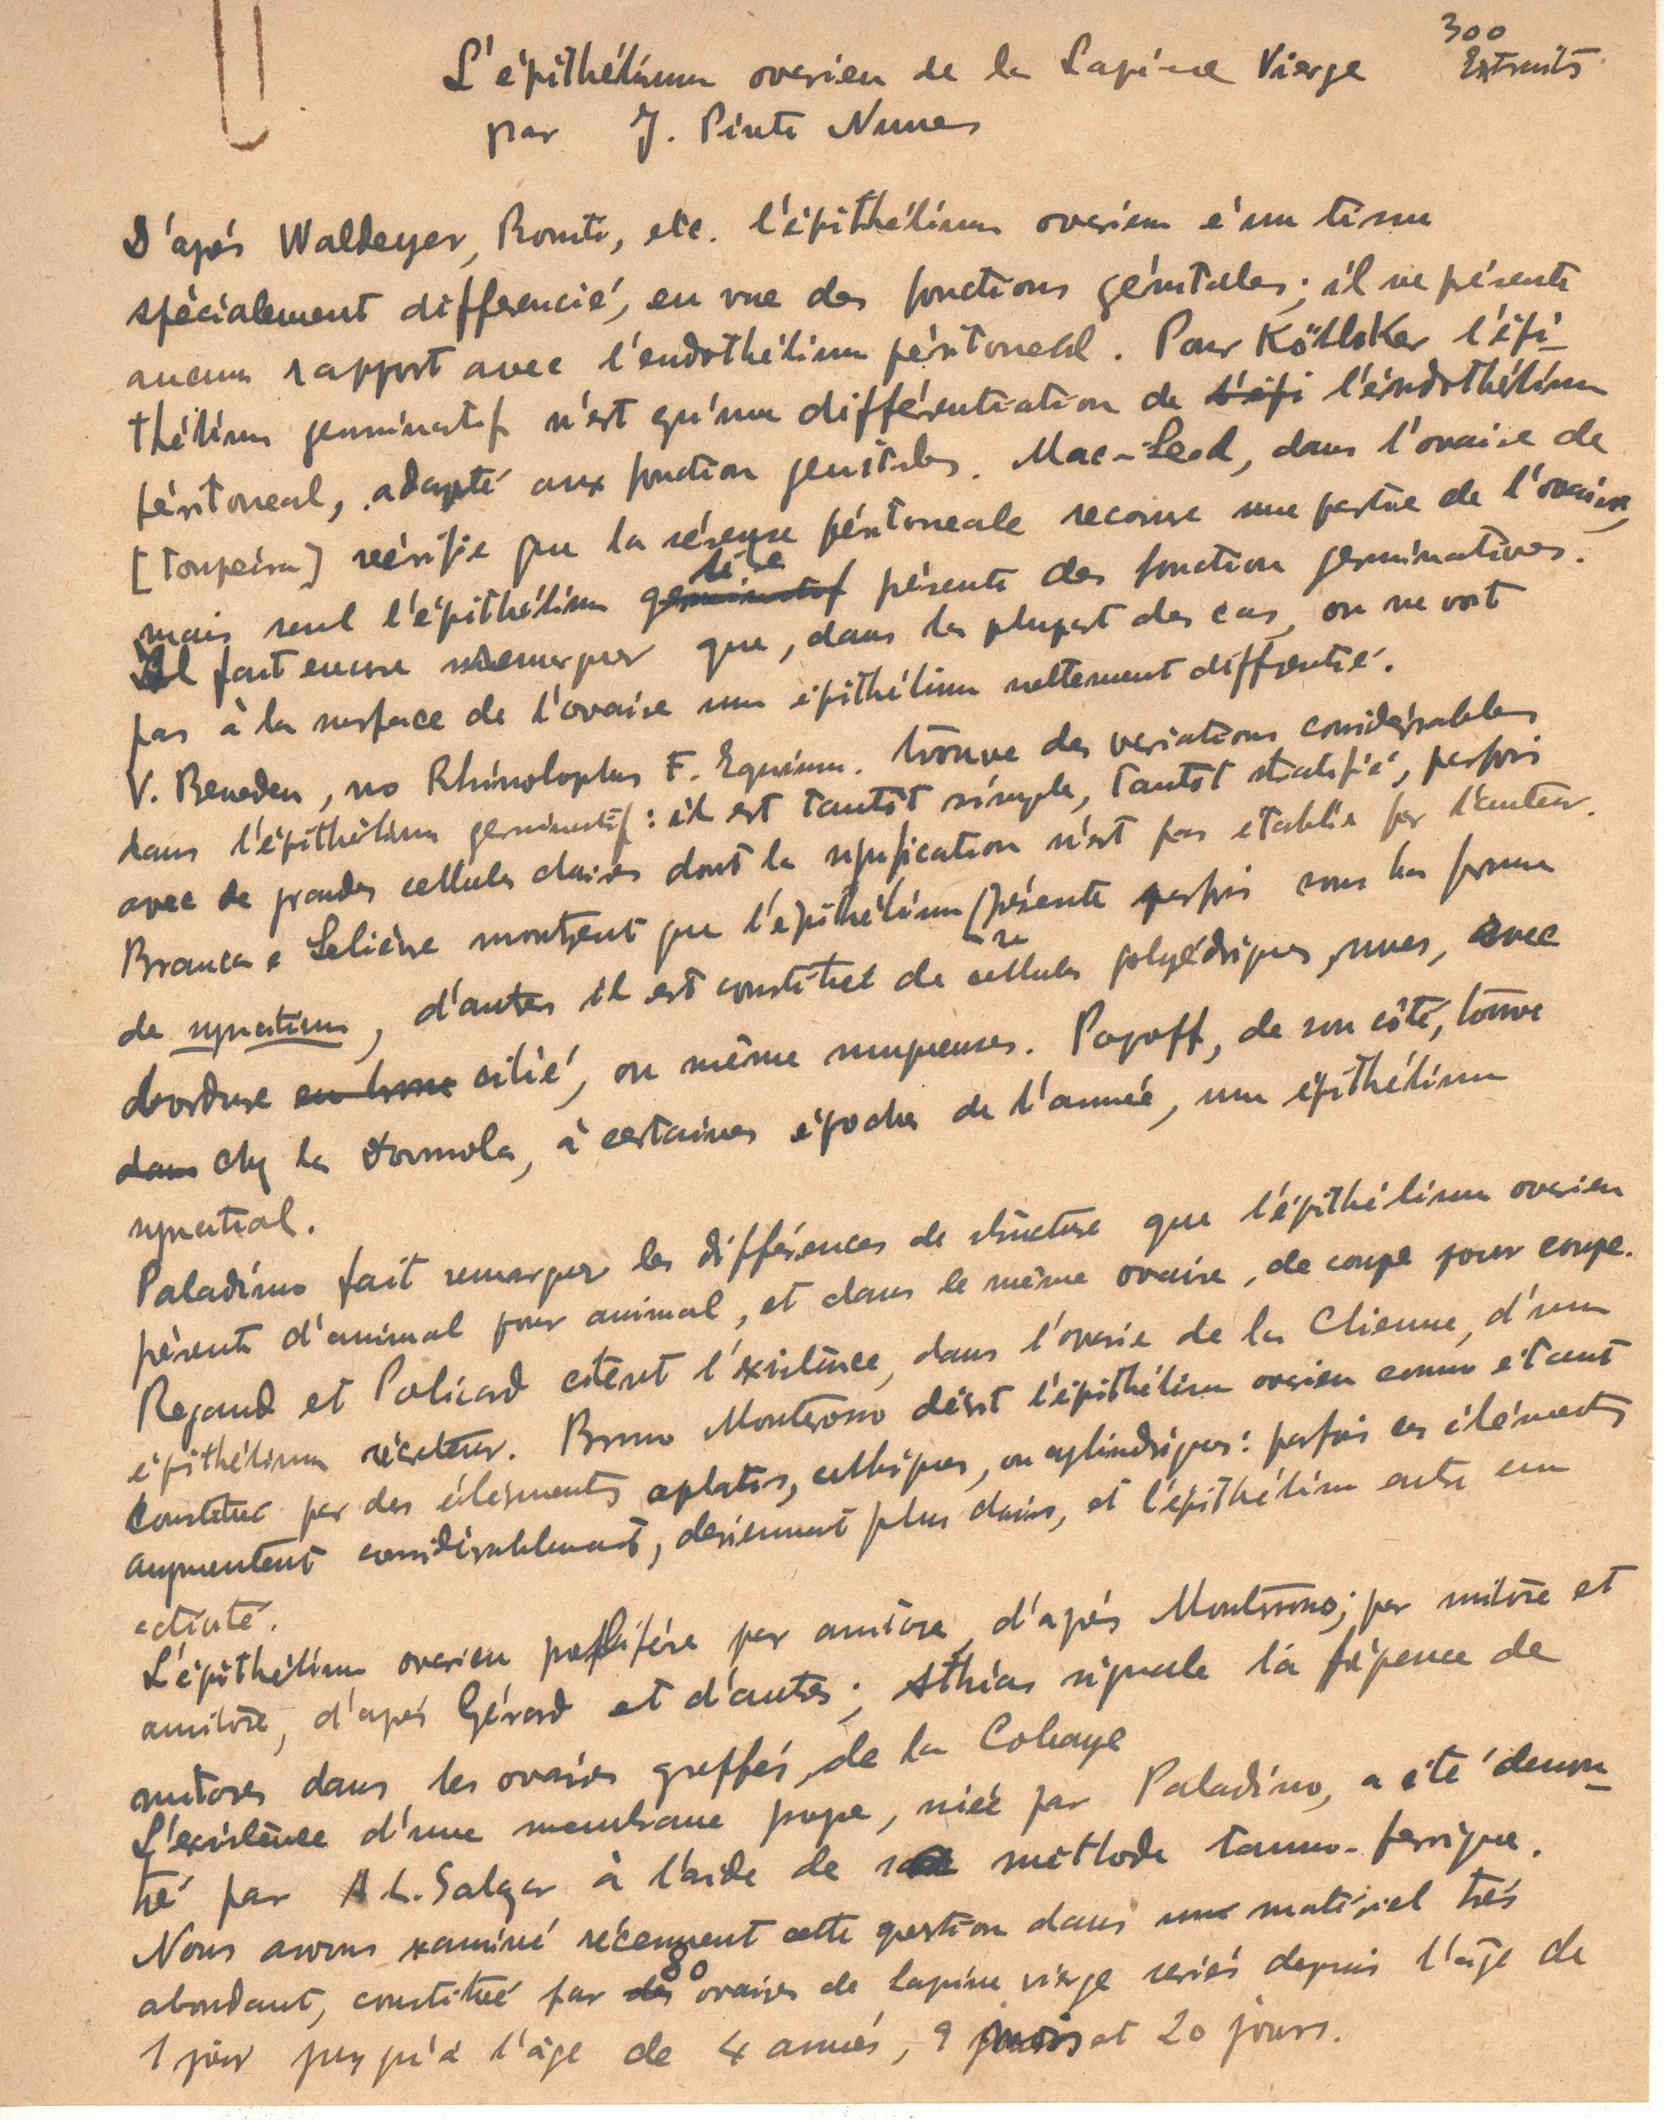 300
L'épithélium ovarien de la Lapine Vierge Extraits
par J. Pinto Nunes
D'aprés Waldeyer, Romiti, etc. l'épithélium ovarien é un tissu
spécialement differencié, en vue des fonctions génitales; il ne présente
aucun rapport avec l'endothélium péritoneal. Pour Kölliker l'épi-
thélium germinatif n'est qu'une différentiation de l'épi l'éndothélium
péritoneal, adapté aux fonction genitales. Mac-Leod, dans l'ovaire de
[Toupeira] vérifie que la séreuse péritoneale recouvre une partie de l'ovaire,
mais seul l'épithélium germinatif présente des fonction germinatives.
Il faut encore remarquer que, dans la plupart des cas, on ne voit
pas à la surface de l'ovaire un épithélium nettement différentié.
V. Beneden, no Rhinolophus F. Equinum. trouve des variations considérables
dans l'épithélium germinatif: il est tantôt simple, tantôt stratifié, parfois
avec de grandes cellules claires dont la signification n'est pas etablie par l'auteur.
Branca e Leliévre montrent que l'épithélium présente parfois sous la forme
de syncitium, d'autres il est constitué de cellules polyédriques, nues, avec
bordure cilié, ou même muqueuses. Popoff, de son côté, trouve
dans chez la , à certaines époches de l'année, un épithélium
syncitial.
Paladino fait remarquer les différences de structure que l'épithélium ovarien
présente d'animal pour animal, et dans le même ovaire, de coupe pour coupe.
Regaud et Policard citent l'existence, dans l'ovarie de la Chienne, d'un
épithélium sécréteur. Bruno Monterosso décrit l'épithélium ovarien comme étant
constitué par des éléments aplatis, cubiques, ou cylindriques: parfois ces éléments
augmentent considérablement, deviennent plus clairs, et l'épithélium entre en
activité.
L'épithélium ovarien prolifére par amitose, d'aprés Monterosso; par mitose et
amitose, d'aprés Gérard et d'autres; Athias signale la fréquence de
mitoses dans les ovaires greffés, de la Cobaye
L'existence d'une membrane propre, niée par Paladino, a été démon-
tré par A. L. Salazar à l'aide de sa méthode tanno-ferrique.
Nous avons examiné récemment cette question dans un matériel trés
80
abondant, constitué par des ovaires de lapine vierge seriés depuis l'âge de
1 jour jusqu'à l'âge de 4 années, 9 mois et 20 jours.